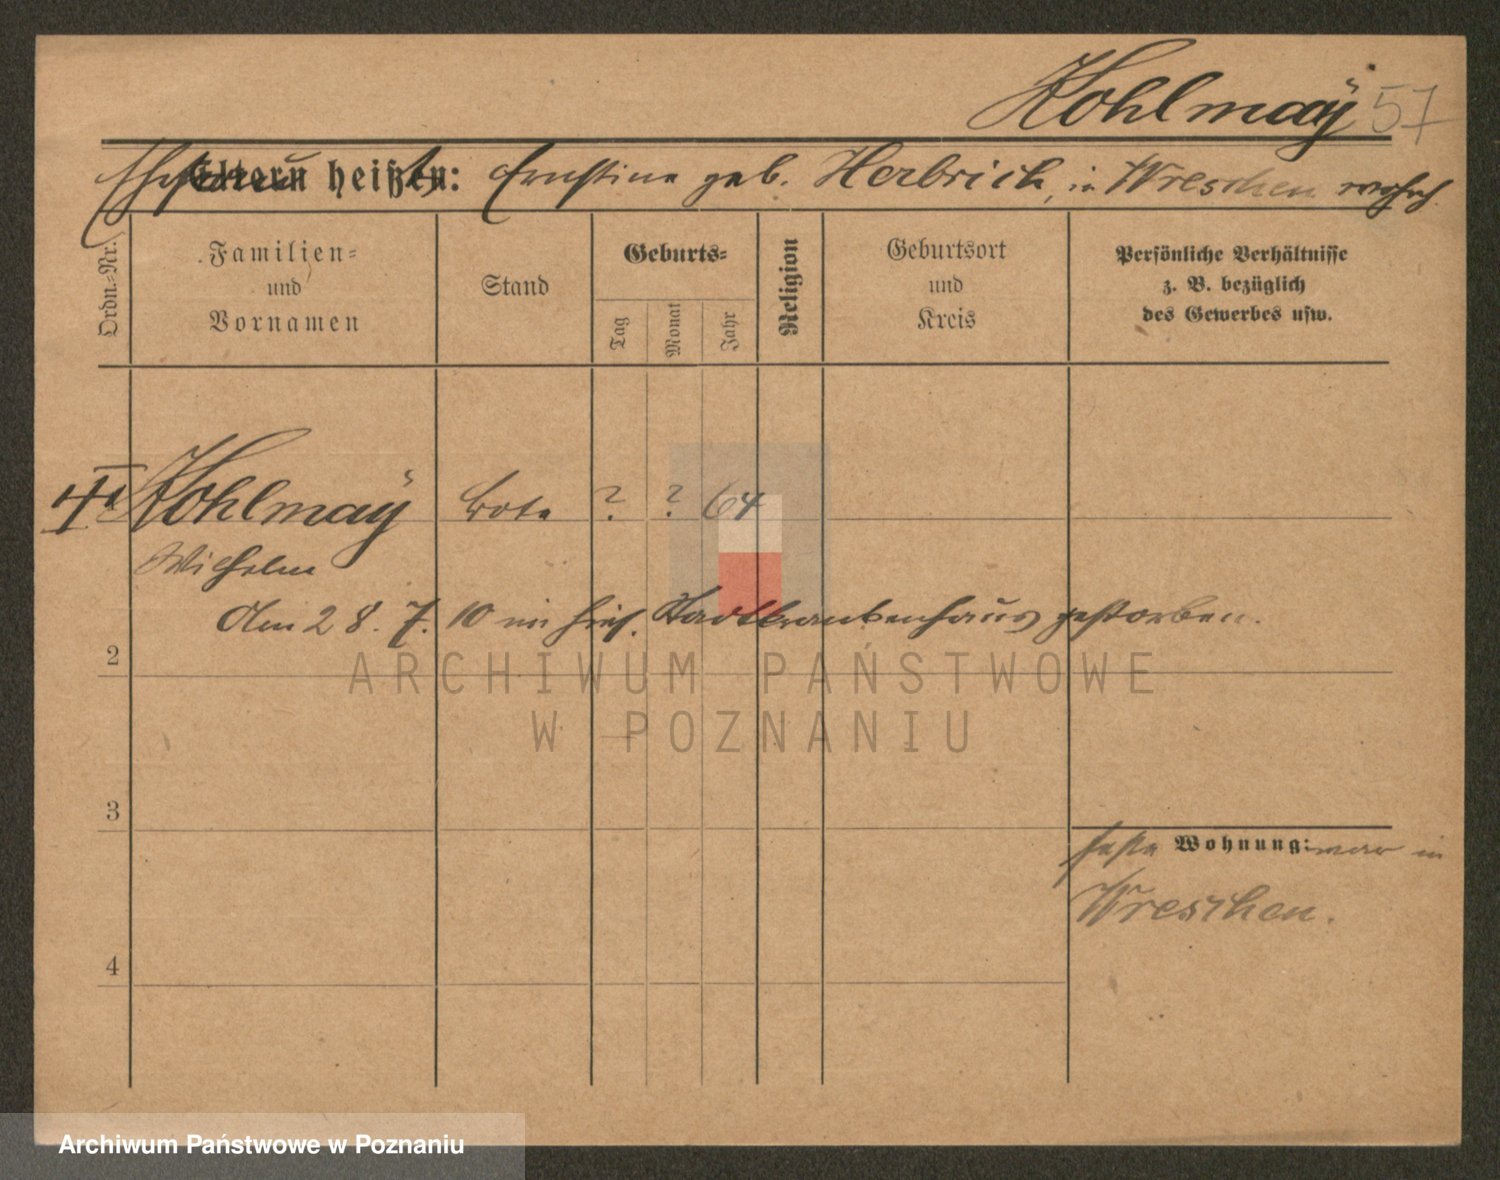 Kohlmaÿ 57
Ehefrau heißt: Ernstine geb. Herbrich, in Wreschen wohnh.
Eltern heißen:
Ordn.-Nr.
Familien-
und
Vornamen
Stand
Geburts-
Tag
Monat
Jahr
Religion
Geburtsort
und
Kreis
Persönliche Verhältnisse
z. B. bezüglich
des Gewerbes usw.
Kohlmaÿ Bote ? ? 64
Wilhelm
Am 28. 7. 10 im hies. Stadtkrankenhaus gestorben.
2
ARCHIWUM PAŃSTWOWE
W POZNANIU
3
feste Wohnung: war in
Wreschen.
4
Archiwum Państwowe w Poznaniu